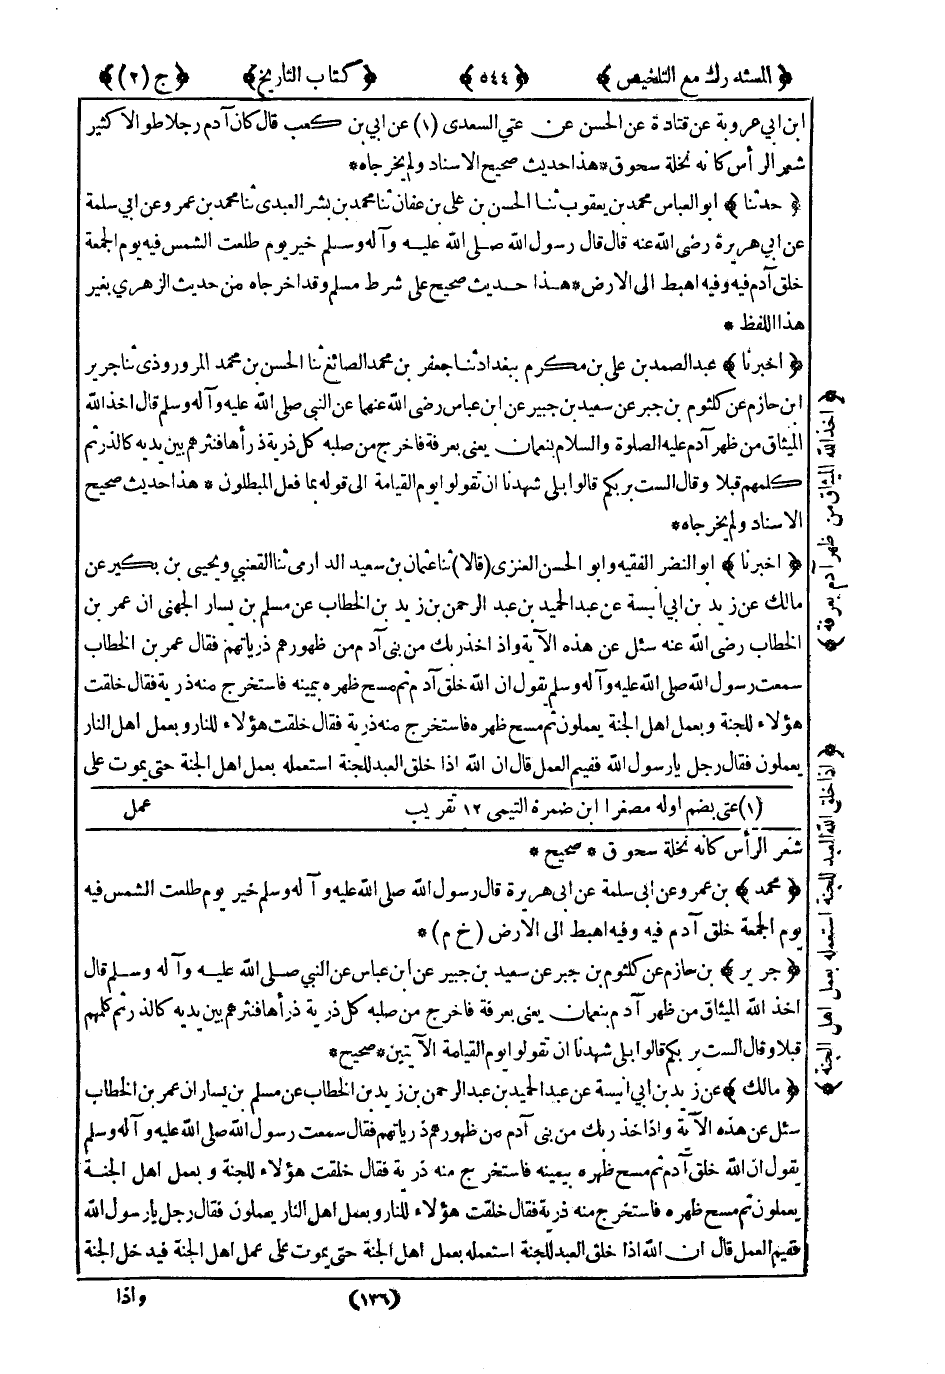 ﴿ المستدرك مع التلخيص ﴾ ﴿ ٥٤٤ ﴾ ﴿ كتاب التاريخ ﴾ ﴿ ج (٢) ﴾
ابن ابى عروبة عن قتادة عن الحسن عن عتى السعدى (١) عن ابي بن كعب قال كان آدم رجلا طوالا كثير
شعر الرأس كانه نخلة سحوق * هذا حديث صحيح الاسناد ولم يخرجاه *
﴿ حدثنا ﴾ ابو العباس محمد بن يعقوب ثنا الحسن بن على بن عفان ثنا محمد بن بشر العبدى ثنا محمد بن عمرو عن ابي سلمة
عن ابي هريرة رضى الله عنه قال قال رسول الله صلى الله عليه وآله وسلم خير يوم طلعت الشمس فيه يوم الجمعة
خلق آدم فيه وفيه اهبط الى الارض * هذا حديث صحيح على شرط مسلم وقد اخرجاه من حديث الزهري بغير
هذا اللفظ *
﴿ اخبرنا ﴾ عبد الصمد بن على بن مكرم ببغداد ثنا جعفر بن محمد الصائغ ثنا الحسن بن محمد المروروذى ثنا جرير
ابن حازم عن كلثوم بن جبر عن سعيد بن جبير عن ابن عباس رضى الله عنهما عن النبي صلى الله عليه وآله وسلم قال اخذ الله
الميثاق من ظهر آدم عليه الصلوة والسلام بنعمان يعنى بعرفة فاخرج من صلبه كل ذرية ذرأها فنثرهم بين يديه كالذر ثم
كلمهم قبلا وقال الست بربكم قالوا بلى شهدنا ان تقولوا يوم القيامة الى قوله بما فعل المبطلون * هذا حديث صحيح
الاسناد ولم يخرجاه *
﴿ اخبرنا ﴾ ابو النضر الفقيه وابو الحسن العنزى (قالا) ثنا عثمان بن سعيد الدارمى ثنا القعنبي ويحيى بن بكير عن
مالك عن زيد بن ابي انيسة عن عبد الحميد بن عبد الرحمن بن زيد بن الخطاب عن مسلم بن يسار الجهنى ان عمر بن
الخطاب رضى الله عنه سئل عن هذه الآية واذ اخذ ربك من بنى آدم من ظهورهم ذرياتهم فقال عمر بن الخطاب
سمعت رسول الله صلى الله عليه وآله وسلم يقول ان الله خلق آدم ثم مسح ظهره بيمينه فاستخرج منه ذرية فقال خلقت
هؤلاء للجنة وبعمل اهل الجنة يعملون ثم مسح ظهره فاستخرج منه ذرية فقال خلقت هؤلاء للنار وبعمل اهل النار
يعملون فقال رجل يارسول الله ففيم العمل قال ان الله اذا خلق العبد للجنة استعمله بعمل اهل الجنة حتى يموت على
(١) عتى بضم اوله مصغرا ابن ضمرة التيمى ١٢ تقريب عمل
شعر الرأس كانه نخلة سحوق * صحيح *
﴿ محمد ﴾ بن عمرو عن ابى سلمة عن ابى هريرة قال رسول الله صلى الله عليه وآله وسلم خير يوم طلعت الشمس فيه
يوم الجمعة خلق آدم فيه وفيه اهبط الى الارض (خ م) *
﴿ جرير ﴾ بن حازم عن كلثوم بن جبر عن سعيد بن جبير عن ابن عباس عن النبي صلى الله عليه وآله وسلم قال
اخذ الله الميثاق من ظهر آدم بنعمان يعنى بعرفة فاخرج من صلبه كل ذرية ذرأها فنثرهم بين يديه كالذر ثم كلمهم
قبلا وقال الست بربكم قالوا بلى شهدنا ان تقولوا يوم القيامة الآيتين * صحيح *
﴿ مالك ﴾ عن زيد بن ابي انيسة عن عبد الحميد بن عبد الرحمن بن زيد بن الخطاب عن مسلم بن يسار ان عمر بن الخطاب
سئل عن هذه الآية واذ اخذ ربك من بنى آدم من ظهورهم ذرياتهم فقال سمعت رسول الله صلى الله عليه وآله وسلم
يقول ان الله خلق آدم ثم مسح ظهره بيمينه فاستخرج منه ذرية فقال خلقت هؤلاء للجنة وبعمل اهل الجنة
يعملون ثم مسح ظهره فاستخرج منه ذرية فقال خلقت هؤلاء للنار وبعمل اهل النار يعملون فقال رجل يارسول الله
ففيم العمل قال ان الله اذا خلق العبد للجنة استعمله بعمل اهل الجنة حتى يموت على عمل اهل الجنة فيدخل الجنة
(١٣٦) واذا
﴿ اخذ الله الميثاق من ظهر آدم بعرفة ﴾
﴿ اذا خلق الله العبد للجنة استعمله بعمل اهل الجنة ﴾